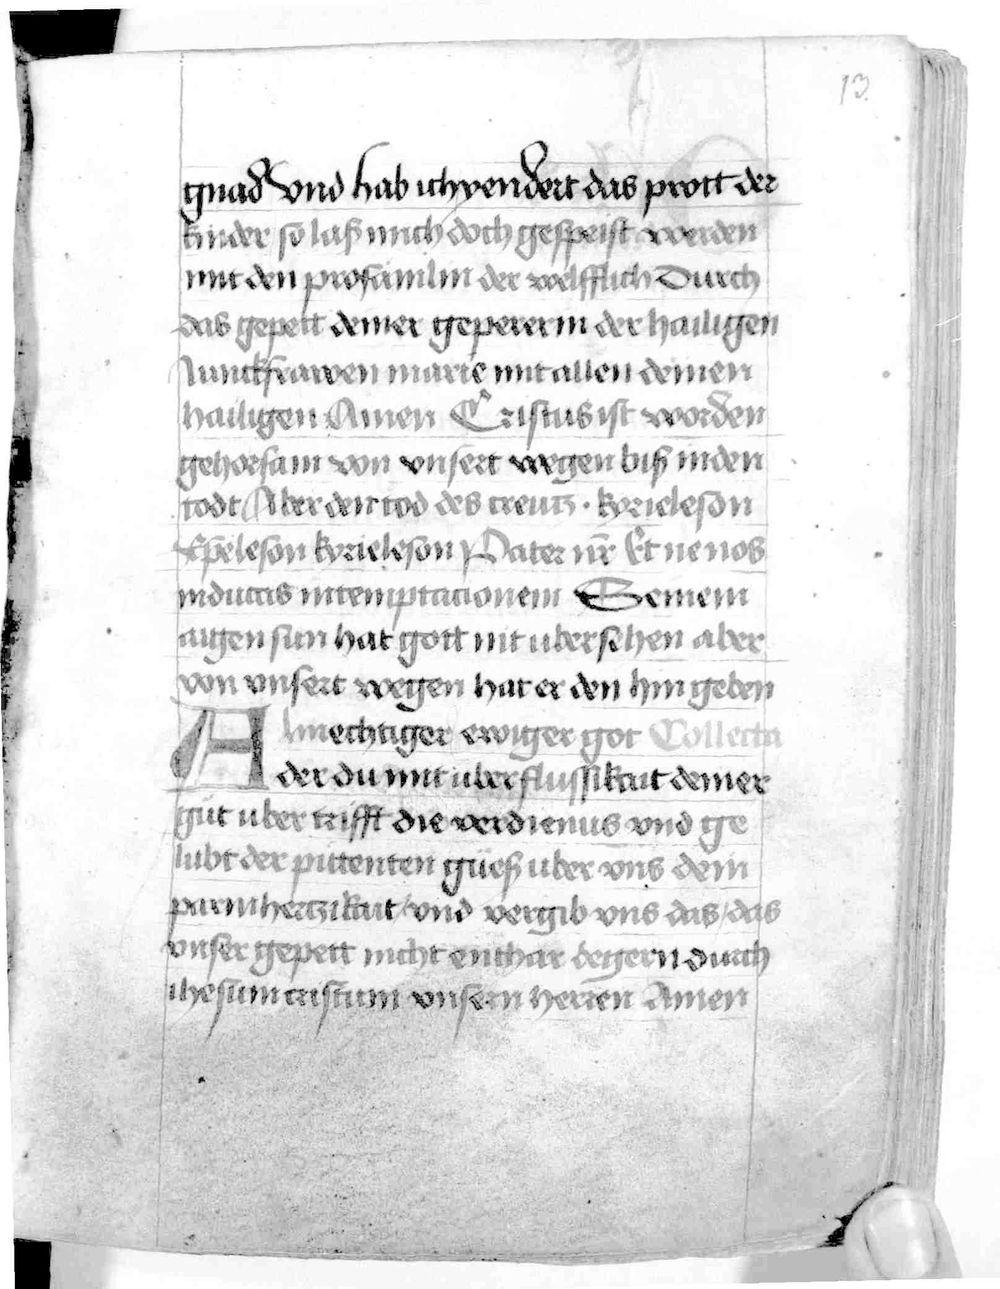 13
gnad vnd hab ich yendert das prott der
kinder so laß mich doch gespeist werden
mit den prosamlin der welfflich Durch
das gepett deiner gepererin der hailigen
Junckfrawen marie mit allen deinen
hailigen Amen Cristus ist worden
gehorsam von vnsert wegen biß in den
todt Aber den tod des creutz · kyrieleson
Cpeleson kyrieleson Pater nr Et ne nos
inducas in temptacionem Seinem
aigen sun hat gott nit übersehen aber
von vnsert wegen hat er den hin geben
Almechtiger ewiger got Collecta
der du mit uberflüssikait deiner
güt uber trifft die verdienus vnd ge
lubt der pittenten güeß uber vns dein
parmhertzikait / vnd vergib vns das / das
vnser gepett nicht begern durch
ihesum cristum vnsern herren Amen